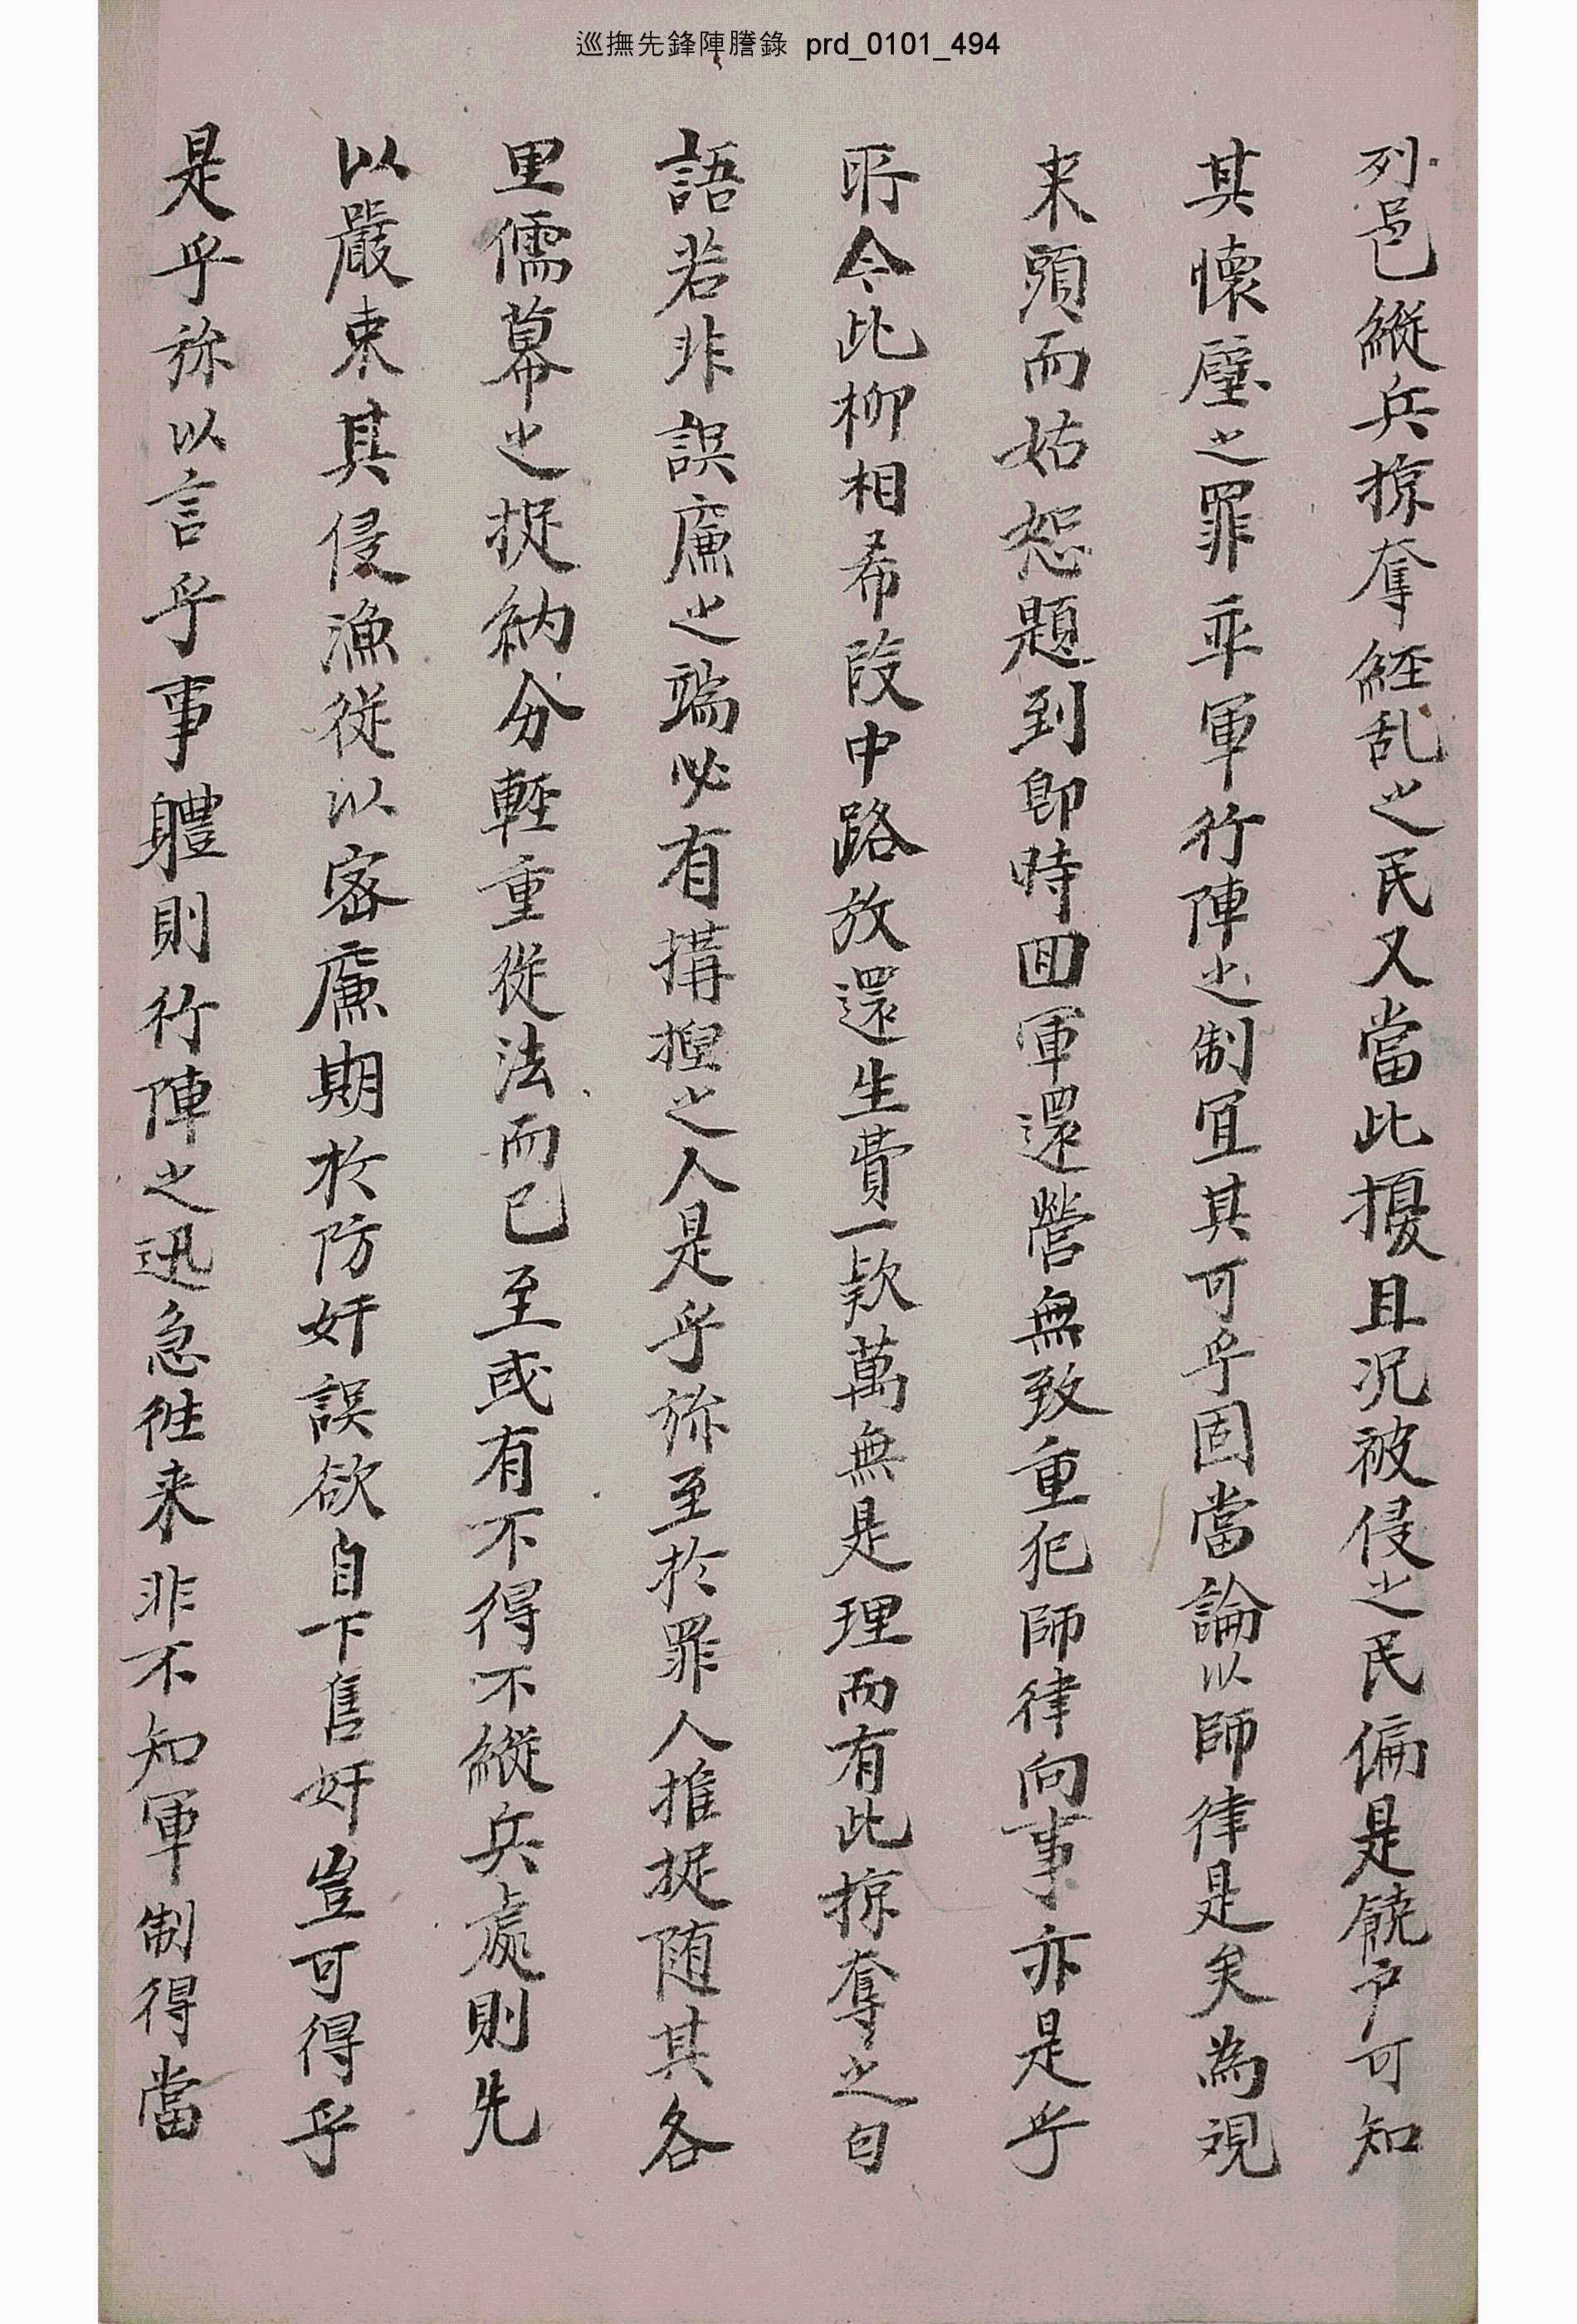 巡撫先鋒陣謄錄 prd_0101_494
列邑縱兵掠奪經乱之民又當此擾且况被侵之民偏是饒戶可知
其懷璧之罪乖軍行陣之制宜其可乎固當論以師律是矣為覌
来頭而姑恕題到卽時囬軍還營無致重犯師律向事亦是乎
所令此柳相希段中路放還生費一款萬無是理而有此掠奪之句
語若非誤廉之端必有搆捏之人是乎㫆至於罪人推捉随其各
里儒幕之捉納分輕重從法而已至或有不得不縱兵處則先
以嚴束其侵漁從以密廉期於防奸誤欲自下售奸豈可得乎
是乎㫆以言乎事軆則行陣之迅急徃来非不知軍制得當